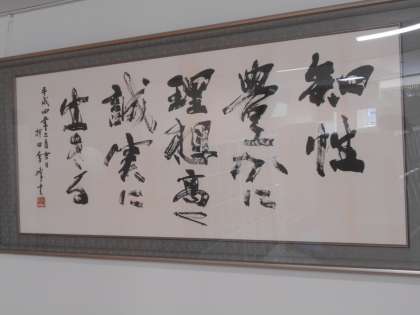 知性
豊かに
理想高く
誠実に
生きる
平成四年三月吉日